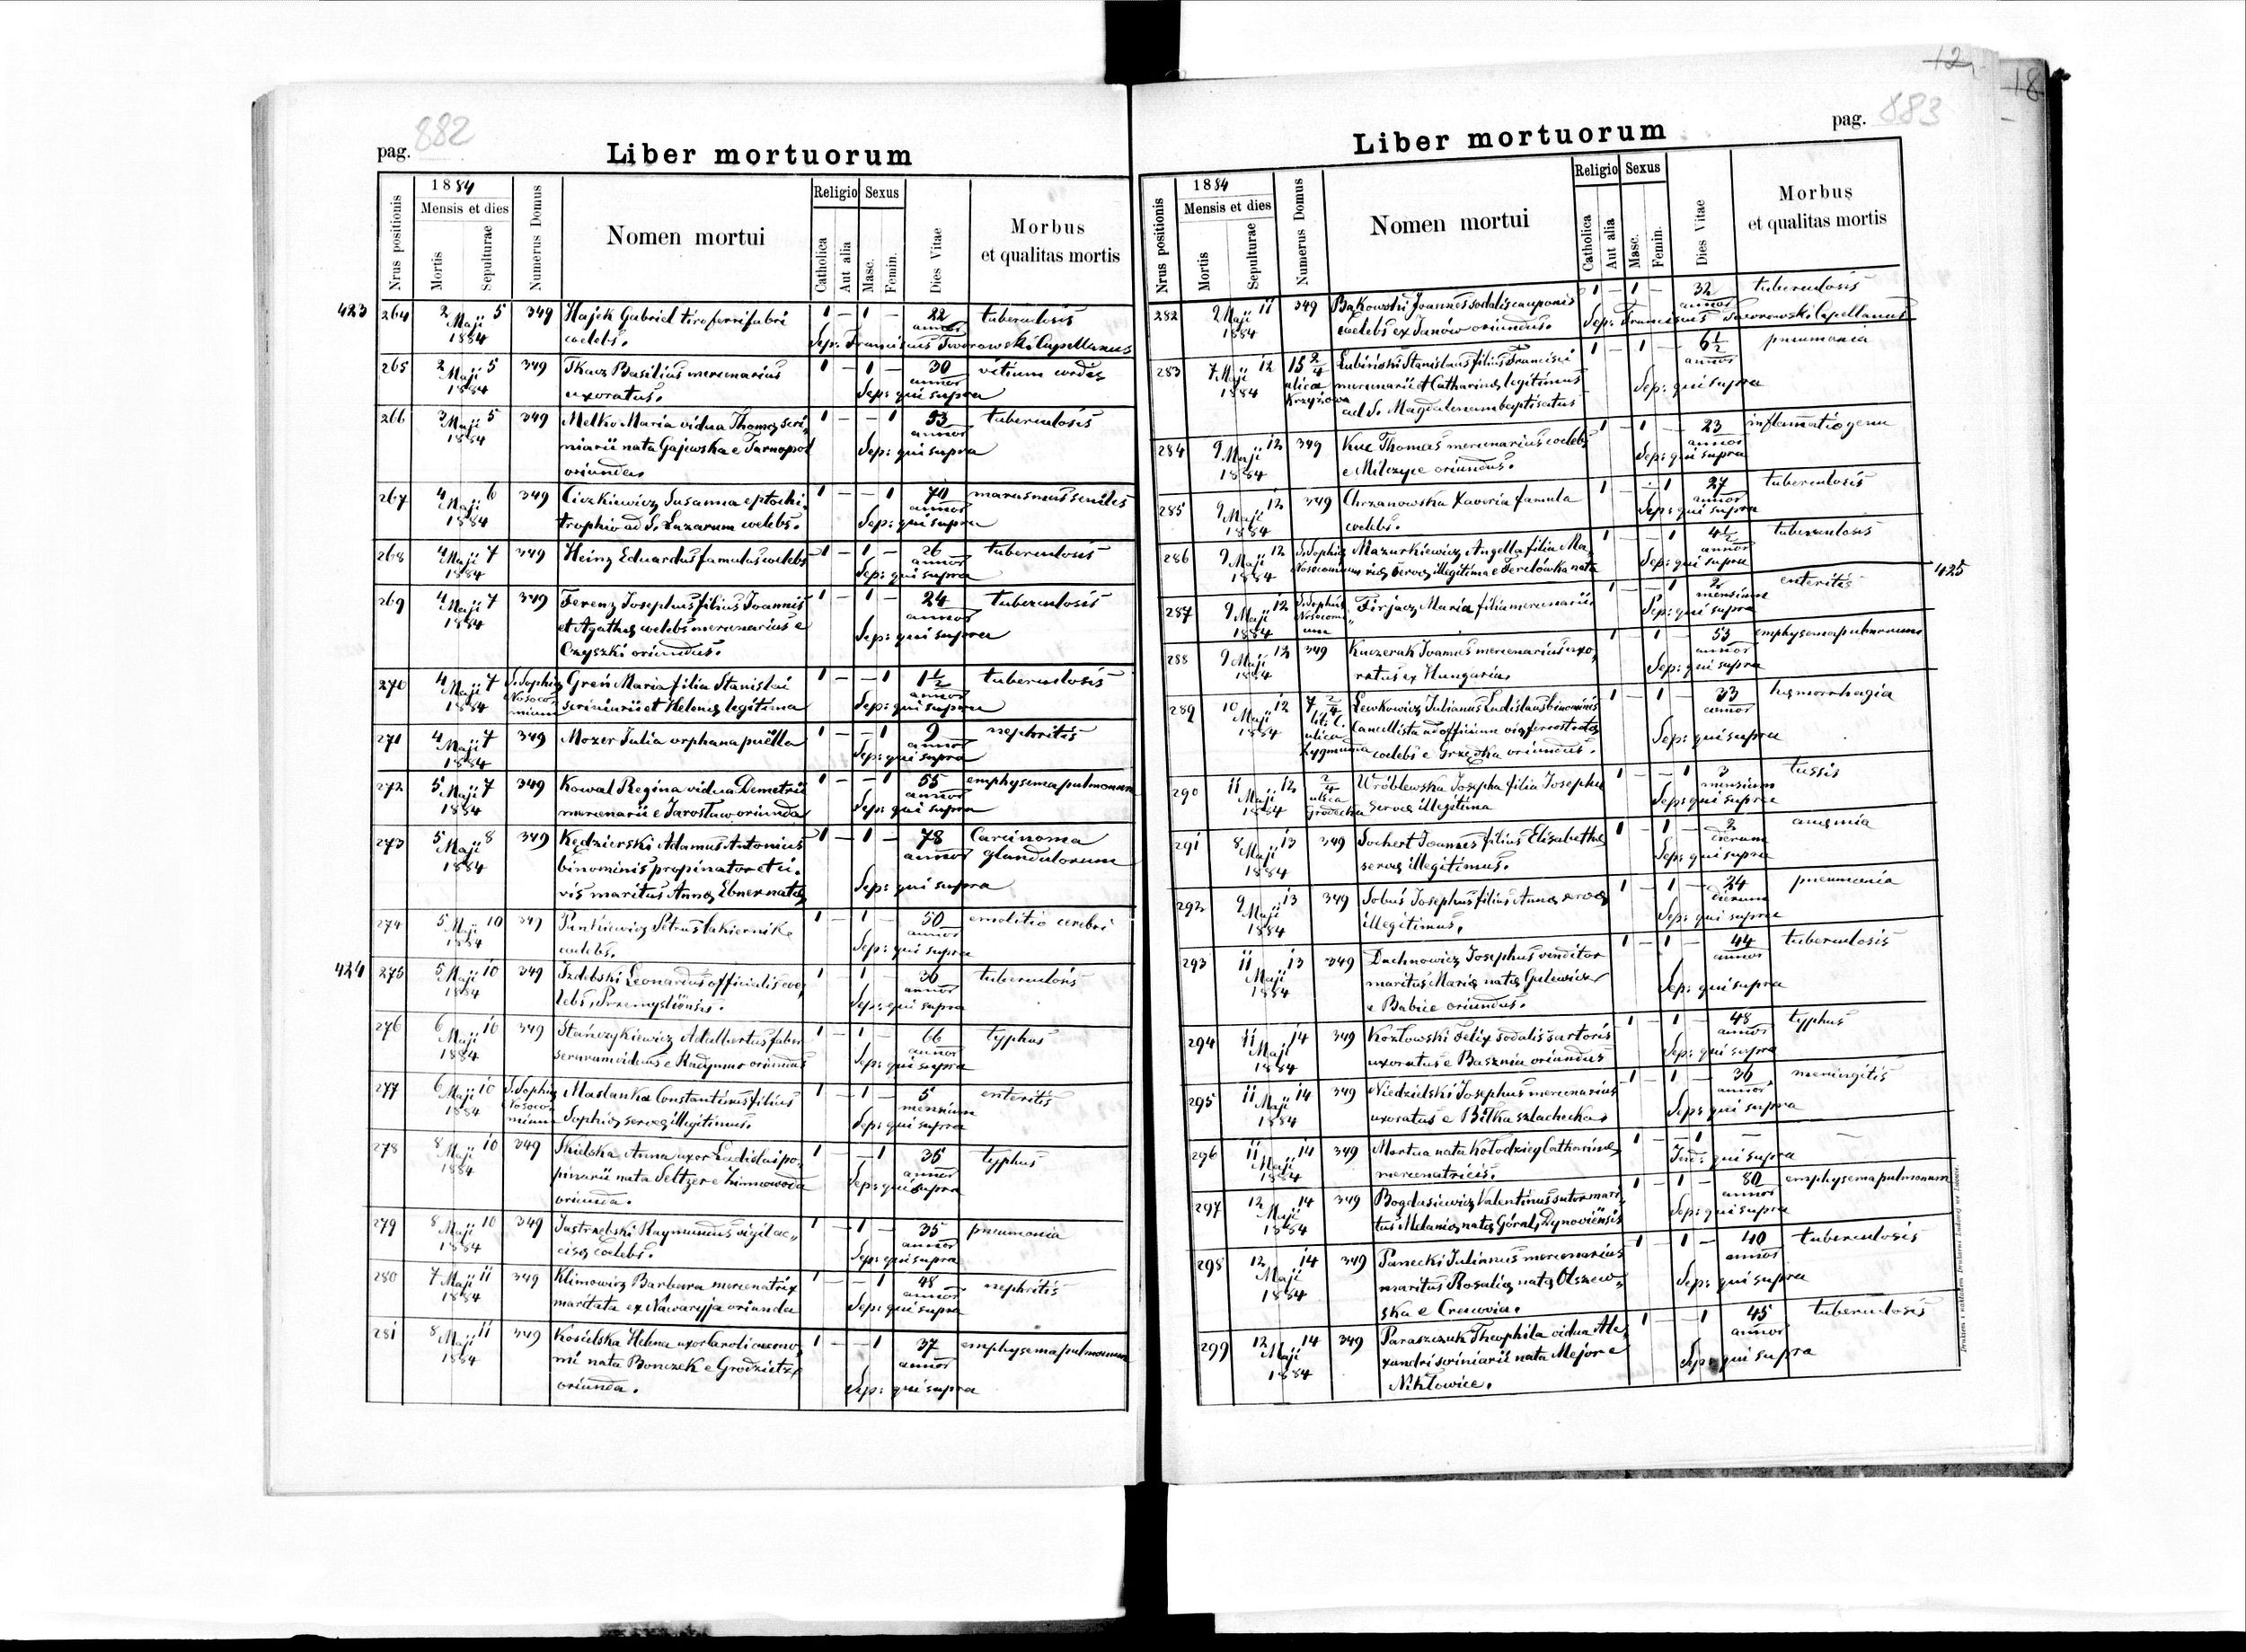 882
pag.
Liber mortuorum
1884
Mensis et dies
Nrus positionis
Mortis
Sepulturae
Numerus Domus
Nomen mortui
Religio
Sexus
Catholica
Aut alia
Masc.
Femin.
Dies Vitae
Morbus
et qualitas mortis
423 264 2 Maji 5 349 Hajek Gabriel tiro ferrifabri 1 – 1 – 22 tuberculosis
1884 caelebs. annor
Sep: Franciscus Tworowski Capellanus
265 2 Maji 5 349 Tkacz Basilius mercenarius 1 – 1 – 30 vitium cordis
1884 uxoratus. annor
Sep: qui supra
266 3 Maji 5 349 Melko Maria vidua Thomę scri„ 1 – – 1 53 tuberculosis
1884 niarii nata Gajewska e Tarnopol annor
oriunda Sep: qui supra
267 4 Maji 6 349 Ciczkiewicz Susanna e ptochi„ 1 – – 1 70 marasmus senilis
1884 trophio ad S. Lazarum coelebs. annor
Sep: qui supra
268 4 Maji 7 349 Heinz Eduardus famulus coelebs 1 – 1 – 26 tuberculosis
1884 annor
Sep: qui supra
269 4 Maji 7 349 Ferenz Josephus filius Joannis 1 – 1 – 24 tuberculosis
1884 et Agathę coelebs mercenarius e annor
Czyszki oriundus. Sep: qui supra
270 4 Maji 7 S. Sophię Greń Maria filia Stanislai 1 – – 1 1½ tuberculosis
1884 Nosoco„ mium scriniarii et Helenę legitima annor
Sep: qui supra
271 4 Maji 7 349 Mozer Julia orphana puella 1 – – 1 9 nephritis
1884 annor
Sep: qui supra
272 5 Maji 7 349 Kowal Regina vidua Demetrii 1 – – 1 55 emphysema pulmonum
1884 mercenarii e Jarosław oriunda annor
Sep: qui supra
273 5 Maji 8 349 Kędzierski Adamus Antonius 1 – 1 – 78 Carcinoma
1884 binominis propinator et ci„ annor glandulorum
vis maritus Annę Ebner natę Sep: qui supra
274 5 Maji 10 349 Pankiewicz Petrus lakiernik 1 – 1 – 50 emolitio cerebri
1884 caelebs. annor
Sep: qui supra
424 275 5 Maji 10 349 Izdebski Leonardus officialis coe„ 1 – 1 – 36 tuberculosis
1884 lebs, Przemysliensis. annor
Sep: qui supra
276 6 Maji 10 349 Stańczykiewicz Adalbertus faber 1 – 1 – 66 typhus
1884 serarum viduus e oriundus annor
Sep: qui supra
277 6 Maji 10 S. Sophię Maslanka Constantinus filius 1 – 1 – 5 enteritis
1884 Nosoco„ mium Sophię servę illegitimus. mensium
Sep: qui supra
278 8 Maji 10 349 Skielska Anna uxor Ladislai po„ 1 – 1 36 typhus
1884 pinarii nata Seltzer e Zimnowoda annor
oriunda. Sep: qui supra
279 8 Maji 10 349 Jastrzebski Raymundus vigil ac„ 1 – 1 – 35 pneumonia
1884 cisę coelebs. annor
Sep: qui supra
280 7 Maji 11 349 Klimowicz Barbara mercenatrix 1 – – 1 48 nephritis
1884 maritata ex Nawaryja oriunda annor
Sep: qui supra
281 8 Maji 11 349 Kosielska Helena uxor Caroli oecono„ 1 – – 1 37 emphysema pulmonum
1884 mi nata Bonczek e annor
oriunda. Sep: qui supra
12
18
883
pag.
Liber mortuorum
1884
Mensis et dies
Nrus positionis
Mortis
Sepulturae
Numerus Domus
Nomen mortui
Religio
Sexus
Catholica
Aut alia
Masc.
Femin.
Dies Vitae
Morbus
et qualitas mortis
282 2 Maji 11 349 Bąkowski Joannes sodalis cauponis 1 – 1 – 32 tuberculosis
1884 coelebs ex Janow oriundus. annor
Sep: Franciscus Tworowski Capellanus
283 7 Maji 12 15 2/4 Lubiński Stanislaus filius Francisci 1 – 1 – 6½ pneumonia
1884 ulica mercenarii et Catharinę legitimus annor
Krzyżowa ad S. Magdalenam baptisatus Sep: qui supra
284 9 Maji 12 349 Kuc Thomas mercenarius coelebs 1 – 1 – 23 inflamatio genu
1884 e Milczyce oriundus. annor
Sep: qui supra
285 9 Maji 12 349 Chrzanowska Xaveria famula 1 – – 1 27 tuberculosis
1884 coelebs. annor
Sep: qui supra
286 9 Maji 12 S. Sophię Mazurkiewicz Angella filia Ma„ 1 – – 1 4½ tuberculosis
1884 Nosocomium rię servę illegitima e nata annor
Sep: qui supra
425
287 9 Maji 12 S. Sophię Firjacz Maria filia mercenarii 1 – – 1 2 enteritis
1884 Nosocomi„ um mensium
Sep: qui supra
288 9 Maji 12 349 Kuczeruk Joannes mercenarius uxo„ 1 – 1 – 53 emphysema pulmonum
1884 ratus ex Hungaria. annor
Sep: qui supra
289 10 Maji 12 7 2/4 Lewkowicz Julianus Ladislaus binominis 1 – 1 – 33 hęmorrhagia
1884 liti C. Cancellista ad officium vię ferrostratę annor
ulica Zygmunda coelebs e Grzęzka oriundus. Sep: qui supra
290 11 Maji 12 2/4 Wróblewska Josepha filia Josephę 1 – – 1 3 tussis
1884 ulica Grodecka servę illegitima mensium
Sep: qui supra
291 8 Maji 13 349 Sochert Joannes filius Elisabethę 1 – 1 – 2 anęmia
1884 servę illegitimus. dierum
Sep: qui supra
292 9 Maji 13 349 Sobus Josephus filius Annę servę 1 – 1 – 24 pneumonia
1884 illegitimus. dierum
Sep: qui supra
293 11 Maji 13 349 Dachnowicz Josephus venditor 1 – 1 – 44 tuberculosis
1884 maritus Marię natę Galewicz annor
e Babice oriundus. Sep: qui supra
294 11 Maji 14 349 Kozłowski Felix sodalis sartoris 1 – 1 – 48 typhus
1884 uxoratus e Basznia oriundus annor
Sep: qui supra
295 11 Maji 14 349 Niedzielski Josephus mercenarius 1 – 1 – 36 meningitis
1884 uxoratus e Biłka szlachecka annor
Sep: qui supra
296 11 Maji 14 349 Mortua nata Kołodziej Catharinę 1 – – 1 – –
1884 mercenatricis. qui supra
297 12 Maji 14 349 Bogdasiewicz Valentinus sutor mari„ 1 – 1 – 80 emphysema pulmonum
1884 tus Melanię natę Góral, Dynoviensis annor
Sep: qui supra
298 12 Maji 14 349 Panecki Julianus mercenarius 1 – 1 – 40 tuberculosis
1884 maritus Rosalię natę Olszew„ annor
ska e Cracovia. Sep: qui supra
299 12 Maji 14 349 Paraszczuk Theophila vidua Ale„ 1 – – 1 45 tuberculosis
1884 xandri scriniarii nata Mejor e annor
Nikłowice. Sep: qui supra